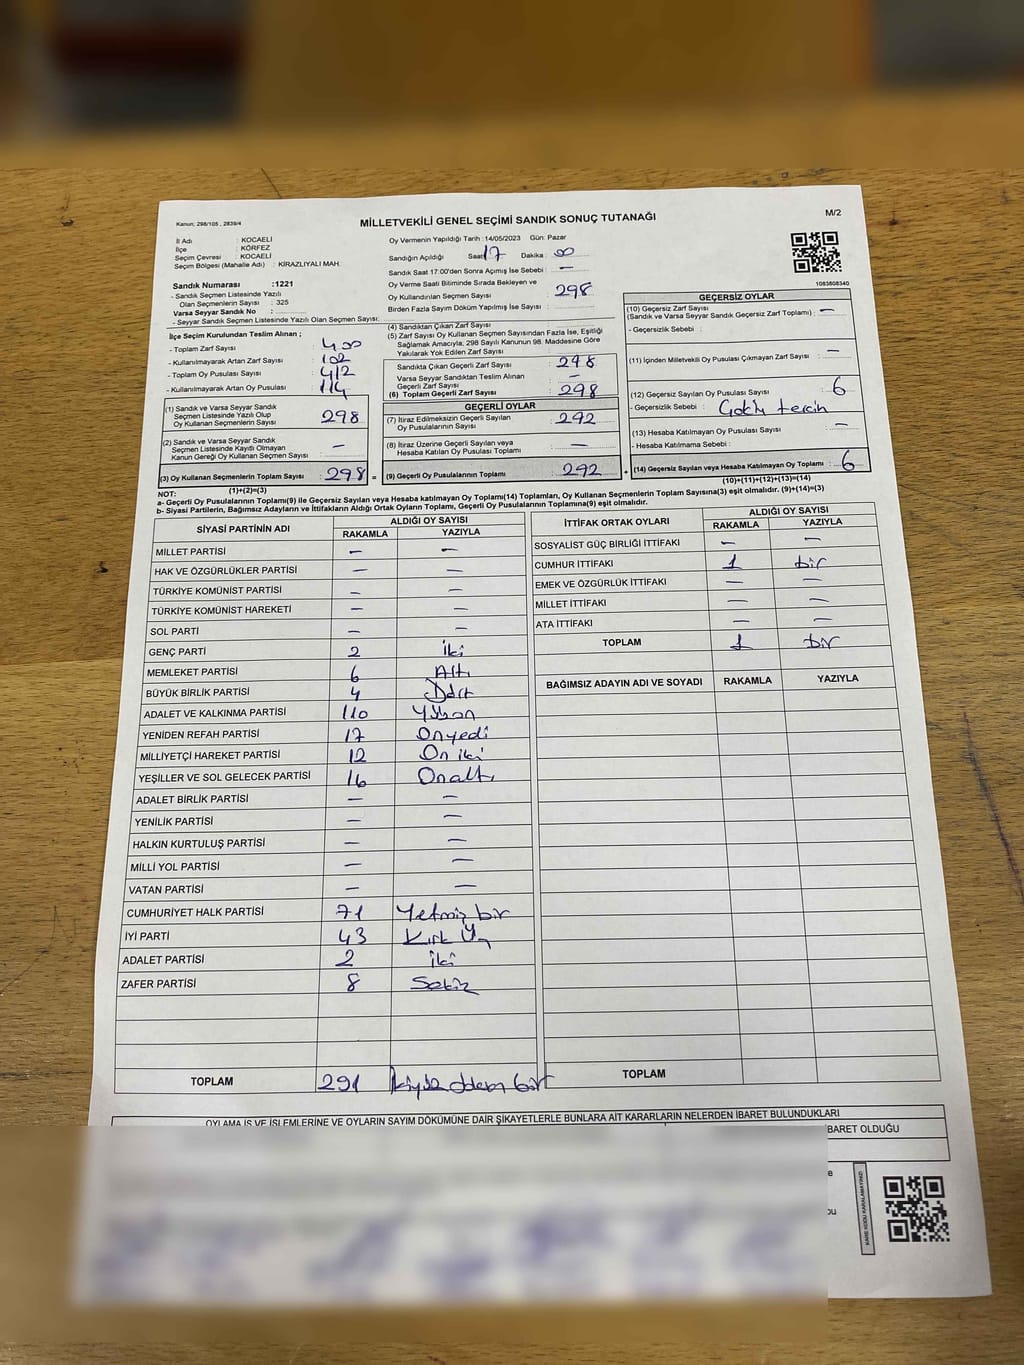 Kanun: 298/105 , 2839/4
MİLLETVEKİLİ GENEL SEÇİMİ SANDIK SONUÇ TUTANAĞI
M/2
İl Adı : KOCAELİ
İlçe : KÖRFEZ
Seçim Çevresi : KOCAELİ
Seçim Bölgesi (Mahalle Adı) : KİRAZLIYALI MAH.
Sandık Numarası :1221
- Sandık Seçmen Listesinde Yazılı
Olan Seçmenlerin Sayısı : 325
Varsa Seyyar Sandık No :
- Seyyar Sandık Seçmen Listesinde Yazılı Olan Seçmen Sayısı:
İlçe Seçim Kurulundan Teslim Alınan ;
- Toplam Zarf Sayısı : 400
- Kullanılmayarak Artan Zarf Sayısı : 102
- Toplam Oy Pusulası Sayısı : 412
- Kullanılmayarak Artan Oy Pusulası : 114
(1) Sandık ve Varsa Seyyar Sandık
Seçmen Listesinde Yazılı Olup
Oy Kullanan Seçmenlerin Sayısı 298
(2) Sandık ve Varsa Seyyar Sandık
Seçmen Listesinde Kaydı Olmayan
Kanun Gereği Oy Kullanan Seçmen Sayısı —
(3) Oy Kullanan Seçmenlerin Toplam Sayısı : 298 =
(1)+(2)=(3)
Oy Vermenin Yapıldığı Tarih : 14/05/2023 Gün: Pazar
Sandığın Açıldığı Saat 17 Dakika : 00
Sandık Saat 17:00'den Sonra Açımış İse Sebebi : —
Oy Verme Saati Bitiminde Sırada Bekleyen ve
Oy Kullandırılan Seçmen Sayısı : 298
Birden Fazla Sayım Döküm Yapılmış İse Sayısı :
(4) Sandıktan Çıkan Zarf Sayısı
(5) Zarf Sayısı Oy Kullanan Seçmen Sayısından Fazla İse, Eşitliği
Sağlamak Amacıyla; 298 Sayılı Kanunun 98. Maddesine Göre
Yakılarak Yok Edilen Zarf Sayısı
Sandıkta Çıkan Geçerli Zarf Sayısı : 298
Varsa Seyyar Sandıktan Teslim Alınan
Geçerli Zarf Sayısı : —
(6) Toplam Geçerli Zarf Sayısı : 298
GEÇERLİ OYLAR
(7) İtiraz Edilmeksizin Geçerli Sayılan
Oy Pusulalarının Sayısı : 292
(8) İtiraz Üzerine Geçerli Sayılan veya
Hesaba Katılan Oy Pusulası Toplamı : —
(9) Geçerli Oy Pusulalarının Toplamı : 292 +
1083808340
GEÇERSİZ OYLAR
(10) Geçersiz Zarf Sayısı
(Sandık ve Varsa Seyyar Sandık Geçersiz Zarf Toplamı) : —
- Geçersizlik Sebebi :
(11) İçinden Milletvekili Oy Pusulası Çıkmayan Zarf Sayısı : —
(12) Geçersiz Sayılan Oy Pusulası Sayısı : 6
- Geçersizlik Sebebi : tercih
(13) Hesaba Katılmayan Oy Pusulası Sayısı : —
- Hesaba Katılmama Sebebi :
(14) Geçersiz Sayılan veya Hesaba Katılmayan Oy Toplamı : 6
(10)+(11)+(12)+(13)=(14)
NOT:
a- Geçerli Oy Pusulalarının Toplamı(9) ile Geçersiz Sayılan veya Hesaba katılmayan Oy Toplamı(14) Toplamları, Oy Kullanan Seçmenlerin Toplam Sayısına(3) eşit olmalıdır. (9)+(14)=(3)
b- Siyasi Partilerin, Bağımsız Adayların ve İttifakların Aldığı Ortak Oyların Toplamı, Geçerli Oy Pusulalarının Toplamına(9) eşit olmalıdır.
SİYASİ PARTİNİN ADI ALDIĞI OY SAYISI
RAKAMLA YAZIYLA
MİLLET PARTİSİ — —
HAK VE ÖZGÜRLÜKLER PARTİSİ — —
TÜRKİYE KOMÜNİST PARTİSİ — —
TÜRKİYE KOMÜNİST HAREKETİ — —
SOL PARTİ — —
GENÇ PARTİ 2 iki
MEMLEKET PARTİSİ 6 Altı
BÜYÜK BİRLİK PARTİSİ 4 Dört
ADALET VE KALKINMA PARTİSİ 110 Yüzon
YENİDEN REFAH PARTİSİ 17 Onyedi
MİLLİYETÇİ HAREKET PARTİSİ 12 On iki
YEŞİLLER VE SOL GELECEK PARTİSİ 16 Onaltı
ADALET BİRLİK PARTİSİ — —
YENİLİK PARTİSİ — —
HALKIN KURTULUŞ PARTİSİ — —
MİLLİ YOL PARTİSİ — —
VATAN PARTİSİ — —
CUMHURİYET HALK PARTİSİ 71 Yetmiş bir
İYİ PARTİ 43 Kırk Üç
ADALET PARTİSİ 2 iki
ZAFER PARTİSİ 8 Sekiz
TOPLAM 291 ikiyüz doksan bir
İTTİFAK ORTAK OYLARI ALDIĞI OY SAYISI
RAKAMLA YAZIYLA
SOSYALİST GÜÇ BİRLİĞİ İTTİFAKI — —
CUMHUR İTTİFAKI 1 bir
EMEK VE ÖZGÜRLÜK İTTİFAKI — —
MİLLET İTTİFAKI — —
ATA İTTİFAKI — —
TOPLAM 1 bir
BAĞIMSIZ ADAYIN ADI VE SOYADI RAKAMLA YAZIYLA
TOPLAM
OYLAMA İŞ VE İŞLEMLERİNE VE OYLARIN SAYIM DÖKÜMÜNE DAİR ŞİKAYETLERLE BUNLARA AİT KARARLARIN NELERDEN İBARET BULUNDUKLARI
İBARET OLDUĞU
KARE KODU KARALAMAYINIZ!